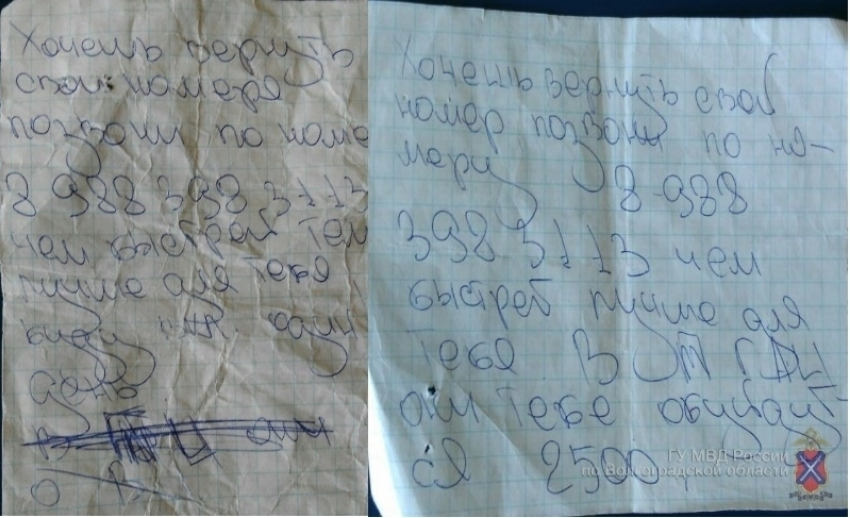 Хочешь вернуть
свои номера
позвони по номе
8 988 398 3113
чем быстрей тем
лучше для тебя
жду один
день
Хочешь вернуть свой
номер позвони по но-
меру 8-988
398 3113 чем
быстрей лучше для
тебя В ГАИ
они тебе обойдут-
ся 2500
ГУ МВД России
по Волгоградской области